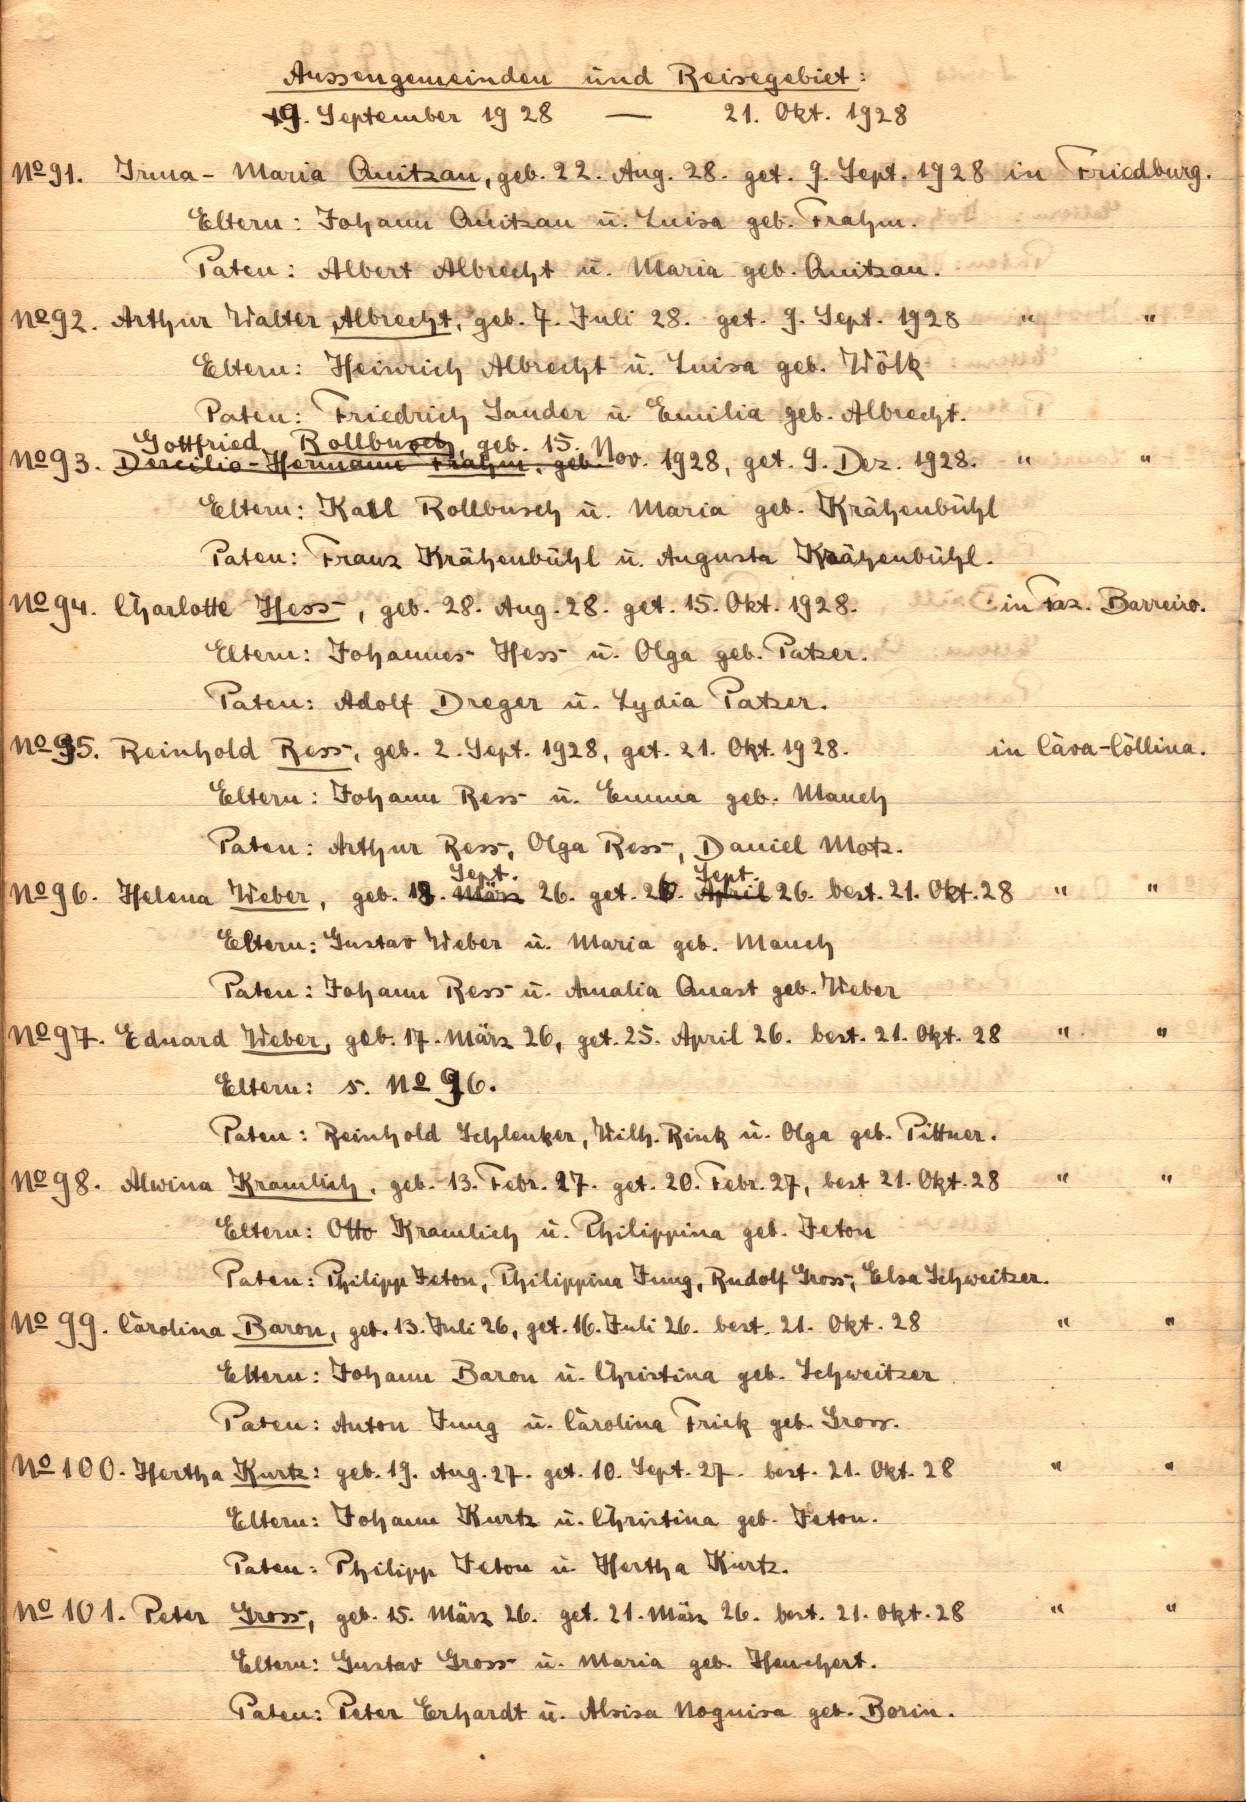 Aussengemeinden und Reisegebiet:
9. September 1928 — 21. Okt. 1928
No 91. Irma-Maria Quitzau, geb. 22. Aug. 28. get. 9. Sept. 1928 in Friedburg.
Eltern: Johann Quitzau u. Luisa geb. Frahm.
Paten: Albert Albrecht u. Maria geb. Quitzau.
No 92. Arthur Walter Albrecht, geb. 7. Juli 28. get. 9. Sept. 1928 " "
Eltern: Heinrich Albrecht u. Luisa geb. Wölk
Paten: Friedrich Sander u. Emilia geb. Albrecht.
Gottfried Rollbusch, geb. 15. Nov.
No 93. Dercilio-Hermann Frahm, geb. 1928, get. 9. Dez. 1928. " "
Eltern: Karl Rollbusch u. Maria geb. Krähenbühl
Paten: Franz Krähenbühl u. Augusta Krähenbühl.
No 94. Charlotte Hess, geb. 28. Aug. 28. get. 15. Okt. 1928. in Faz. Barreiro.
Eltern: Johannes Hess u. Olga geb. Patzer.
Paten: Adolf Dreger u. Lydia Patzer.
No 95. Reinhold Ress, geb. 2. Sept. 1928, get. 21. Okt. 1928. in Cåva-Cöllina.
Eltern: Johann Ress u. Emma geb. Mauch
Paten: Arthur Ress, Olga Ress, Daniel Motz.
Sept. Sept.
No 96. Helena Weber, geb. März 26. get. April 26. best. 21. Okt. 28 " "
Eltern: Gustav Weber u. Maria geb. Mauch
Paten: Johann Ress u. Amalia Quast geb. Weber
No 97. Eduard Weber, geb. 17. März 26, get. 25. April 26. best. 21. Okt. 28 " "
Eltern: s. No 96.
Paten: Reinhold Schlenker, Wilh. Rink u. Olga geb. Pittner.
No 98. Alwina Kramlich, geb. 13. Febr. 27. get. 20. Febr. 27, best 21. Okt. 28 " "
Eltern: Otto Kramlich u. Philippina geb. Jeton
Paten: Philipp Jeton, Philippina Jung, Rudolf Gross, Elsa Schweitzer.
No 99. Carolina Baron, geb. 13. Juli 26, get. 16. Juli 26. best. 21. Okt. 28 " "
Eltern: Johann Baron u. Christina geb. Schweitzer
Paten: Anton Jung u. Carolina Frick geb. Gross.
No 100. Hertha Kurtz: geb. 19. Aug. 27. get. 10. Sept. 27. best. 21. Okt. 28 " "
Eltern: Johann Kurtz u. Christina geb. Jeton.
Paten: Philipp Jeton u. Hertha Kurtz.
No 101. Peter Gross, geb. 15. März 26. get. 21. März 26. best. 21. Okt. 28 " "
Eltern: Gustav Gross u. Maria geb. Hauchert.
Paten: Peter Erhardt u. Alsisa Noguisa geb. Borin.